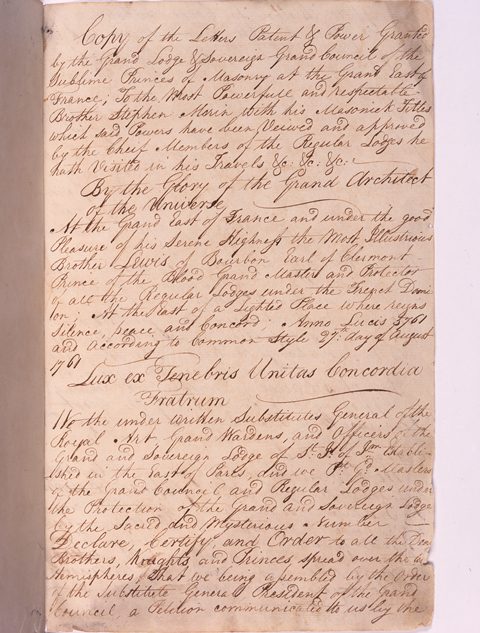 Copy of the Letters Patent & Power Granted
by the Grand Lodge & Sovereign Grand Council of the
Sublime Princes of Masonry at the Grand East of
France; To the Most Powerfull and respectable
Brother Stephen Morin with his Masonick Titles
which said Powers have been Veiwed and approved
by the Cheif Members of the Regular Lodges he
hath Visited in his Travels &c: &c: &c:
By the Glory of the Grand Architect
of the Universe
At the Grand East of France and under the good
Pleasure of his Serene Highness the Most Illustrious
Brother Lewis of Bourbon Earl of Clermont
Prince of the Blood Grand Master and Protector
of all the Regular Lodges under the French Domi
ion; At the East of a Lighted Place where reigns
Silence, peace, and Concord; Anno Lucis 5761
and according to Common Style 27th: day of August
1761
Lux ex Tenebris Unitas Concordia
Fratrum
We the under written Substitutes General of the
Royal Art Grand Wardens, and Officers of the
Grand and Sovereign Lodge of St: Jn: of Jm establi
shed in the East of Paris, and we Masters
of the Grand Council, and Regular Lodges under
the Protection of the Grand and Sovereign Lodge
by the Sacred and Mysterious Number
Declare, Certify, and Order to all the Dear
Brothers, Knights, and Princes, spread over the
Hemispheres, that we being assembled by the Order
of the Substitute General President of the Grand
Council, a Petition communicated to us by